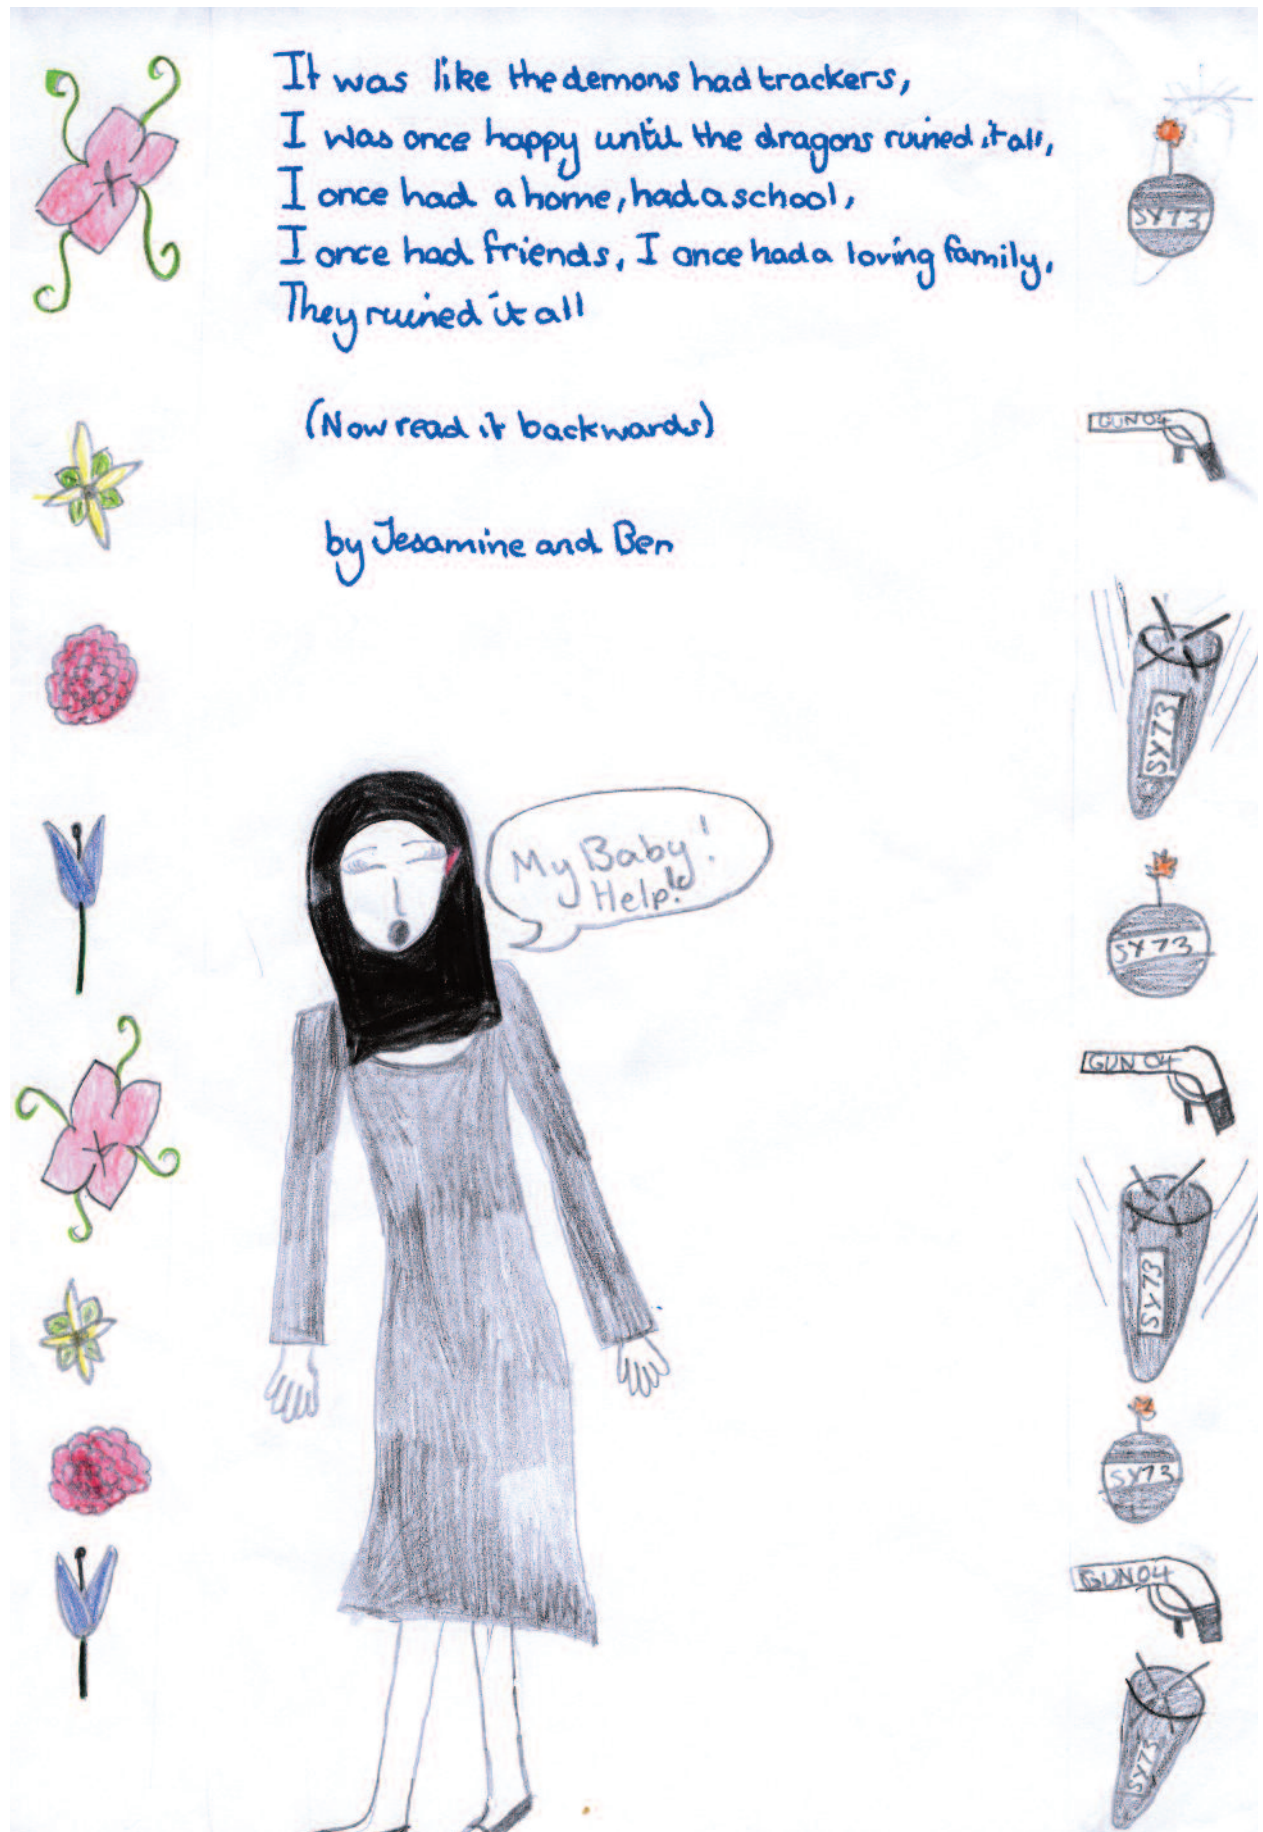 It was like the demons had trackers,
I was once happy until the dragons ruined it all,
I once had a home, had a school,
I once had friends, I once had a loving family,
They ruined it all
(Now read it backwards)
by Jesamine and Ben
My Baby!
Help!
SY73
GUN 04
SY73
SY73
GUN 04
SY73
SY73
GUN 04
SY73